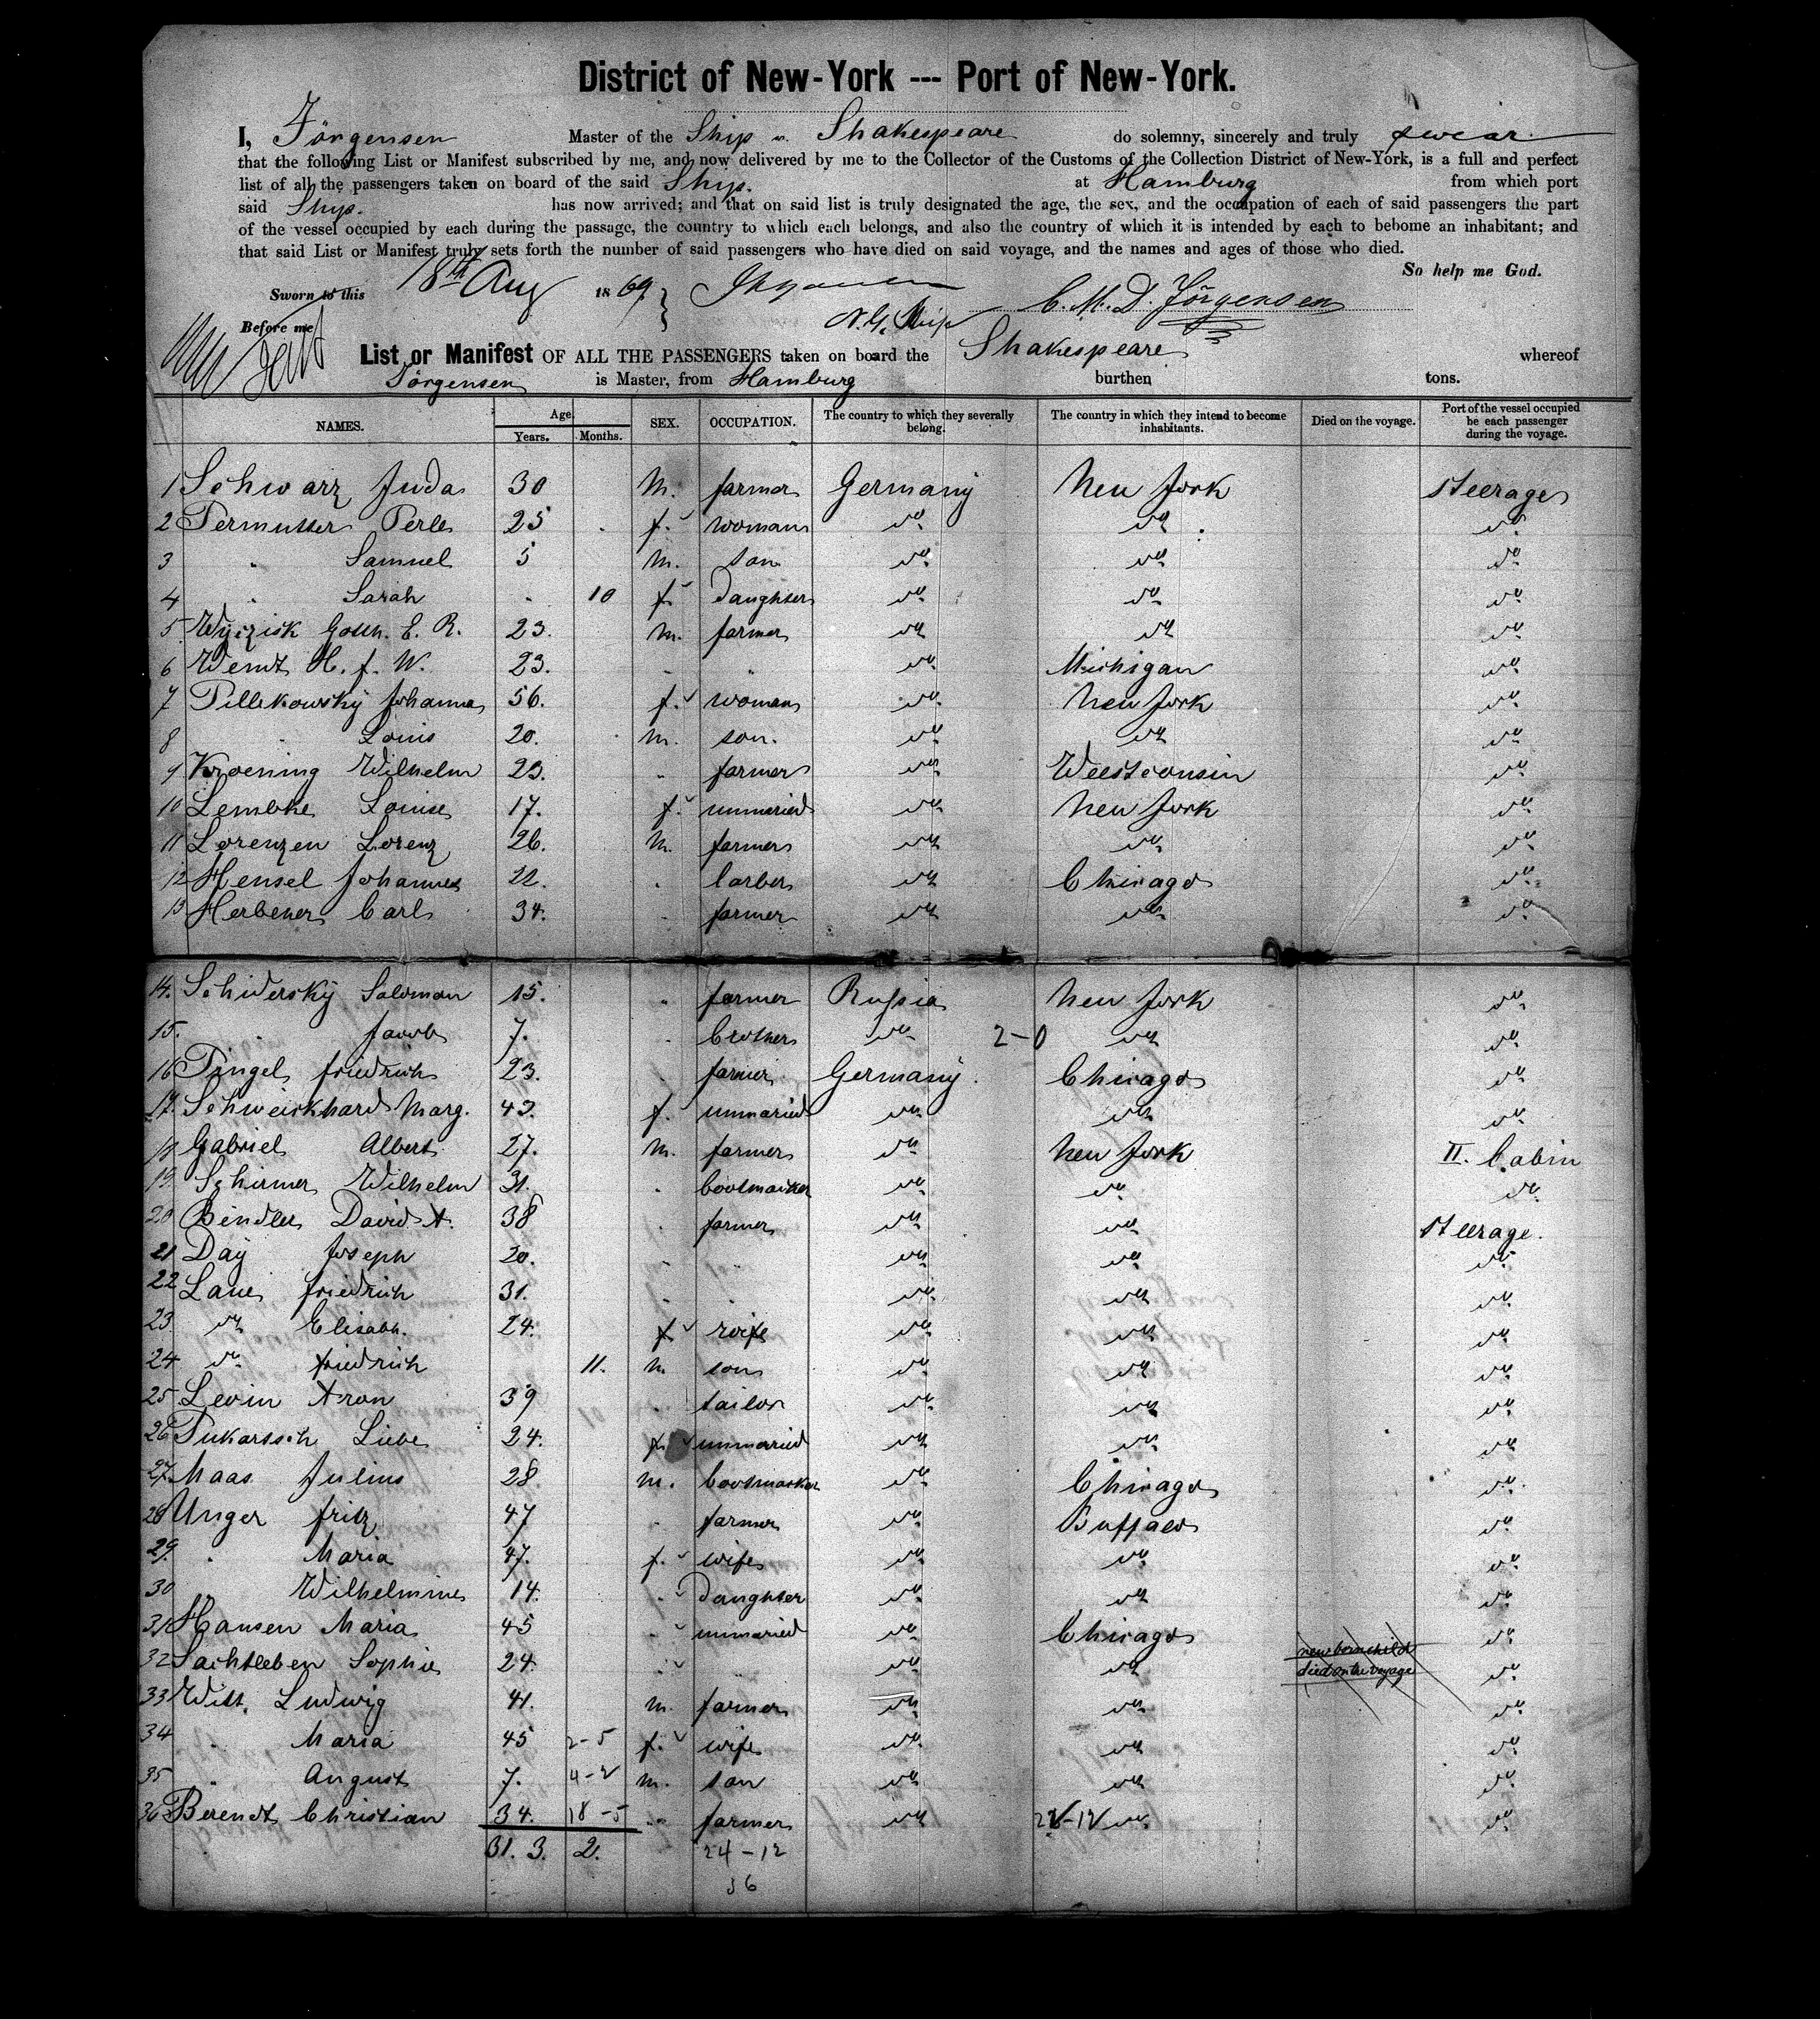 District of New-York --- Port of New-York.
I, Jörgensen Master of the Ship Shakespeare do solemny, sincerely and truly swear
that the following List or Manifest subscribed by me, and now delivered by me to the Collector of the Customs of the Collection District of New-York, is a full and perfect
list of all the passengers taken on board of the said Ship. at Hamburg from which port
said Ship. has now arrived; and that on said list is truly designated the age, the sex, and the occupation of each of said passengers the part
of the vessel occupied by each during the passage, the country to which each belongs, and also the country of which it is intended by each to bebome an inhabitant; and
that said List or Manifest truly sets forth the number of said passengers who have died on said voyage, and the names and ages of those who died.
So help me God.
Sworn to this 18th Aug 1869 C. M. D. Jörgensen
Before me N. G. Ship
List or Manifest OF ALL THE PASSENGERS taken on board the Shakespeare whereof
Jörgensen is Master, from Hamburg burthen tons.
NAMES. Age. Years. Months. SEX. OCCUPATION. The country to which they severally belong. The country in which they intend to become inhabitants. Died on the voyage. Port of the vessel occupied be each passenger during the voyage.
1 Schwarz Juda 30 M. farmer Germany New York steerage
2 Permutter Perle 25 f. woman do do do
3 " Samuel 5 m. son do do do
4 " Sarah 10 f. Daughter do do do
5 Wyczisk Gotth. E. R. 23. m. farmer do do do
6 Wendt H. f. W. 23. " " do Michigan do
7 Pillekowsky Johanna 56. f. woman do New York do
8 " Louis 20. m. son. do do do
9 Kroening Wilhelm 23. " farmer do Weestconsin do
10 Lembke Louise 17. f. unmaried do New York do
11 Lorenzen Lorenz 26. m. farmer do do do
12 Hensel Johannes 22. " barber do Chicago do
13 Herbener Carl 34. " farmer do do do
14. Schidersky Salomon 15. " farmer Russia New York do
15. " Jacob 7. " brother do 2-0 do do
16 Pingel friedrich 23. " farmer Germany. Chicago do
17. Schweickhard Marg. 43. f. unmaried do do do
18 Gabriel Albert 27. m. farmer do New York II. Cabin
19 Schirmer Wilhelm 31. " bootmaker do do do
20 Bendler David A. 38 " farmer do do steerage.
21 Day Joseph 20. " " do do do
22 Laue friedrich 31. " " do do do
23. do Elisabh. 24. f. wife do do do
24 do friedrich 11. m. son do do do
25 Levin Aron 39 " tailor do do do
26 Pukartsch Liebe 24. f. unmaried do do do
27. Maas Julius 28 m. bootmaker do Chicago do
28 Unger fritz 47 " farmer do Buffalo do
29. " Maria 47. f. wife do do do
30 Wilhelmine 14. " Daughter do do do
31 Hansen Maria 45 " unmaried do Chicago do
32 Sachtleben Sophie 24. " " do do new born child died on the voyage do
33 Witt. Ludwig 41. m. farmer do do do
34 " Maria 45 2-5 f. wife do do do
35 " August 7. 4-2 m. son do do do
36 Berendt Christian 34. 18-5 " farmer do 22-12 do do
31. 3. 2. 24-12
36